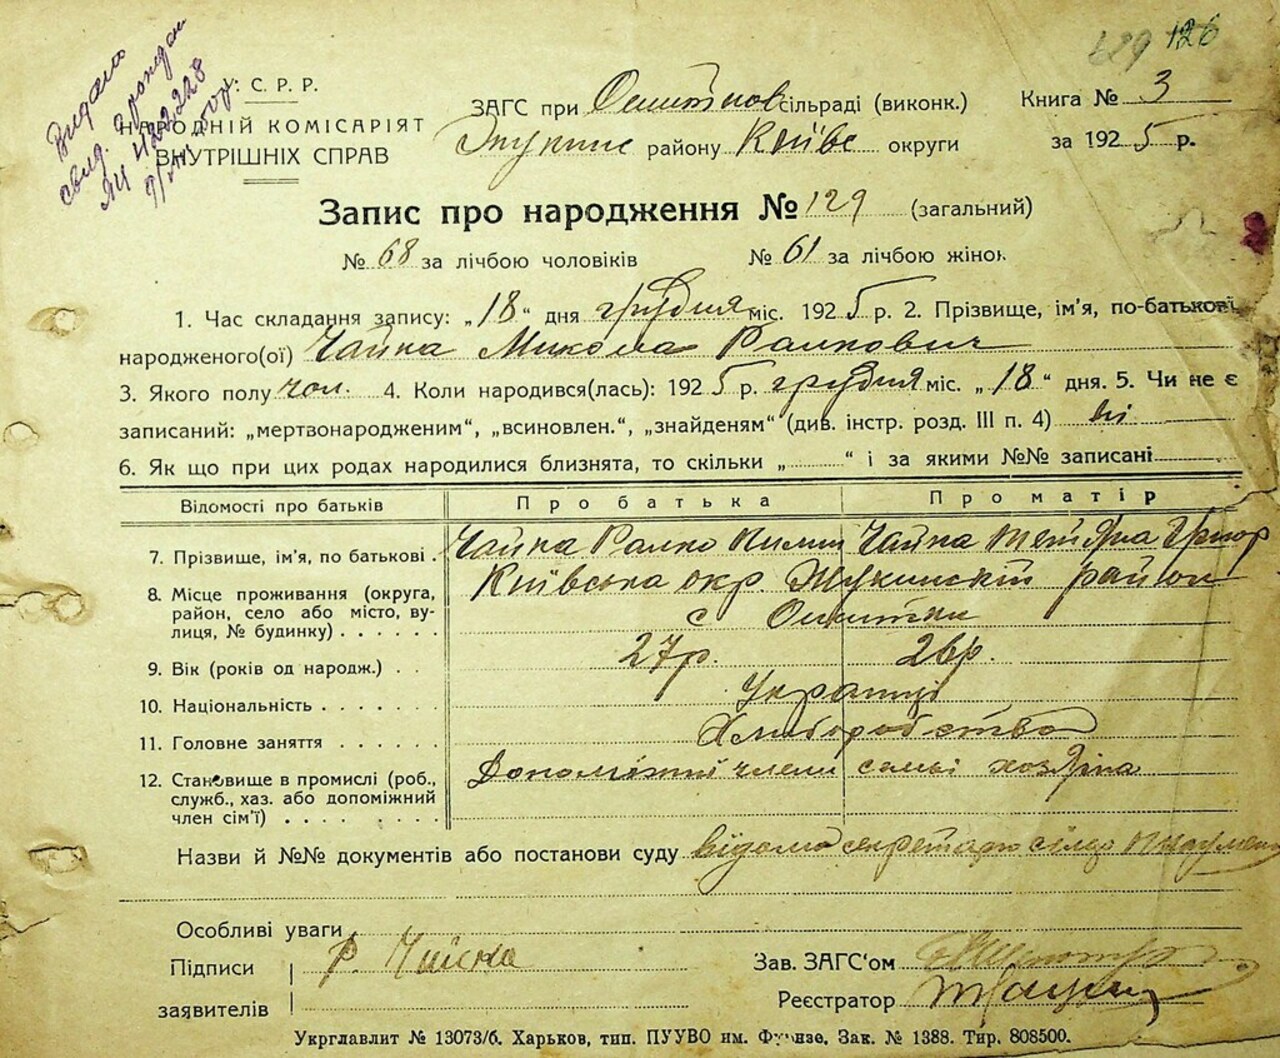 129 126
Видано
свид. о рожден
У. С. Р. Р.
НАРОДНІЙ КОМІСАРІЯТ
ВНУТРІШНІХ СПРАВ
ЗАГС при сільраді (виконк.) Книга № 3
району Київс округи за 1925 р.
Запис про народження № 129 (загальний)
№ 68 за лічбою чоловіків № 61 за лічбою жінок
1. Час складання запису: „18“ дня грудня міс. 1925 р. 2. Прізвище, ім'я, по-батькові
народженого(ої) Чайка Микола Ралкович
3. Якого полу чол. 4. Коли народився(лась): 1925 р. грудня міс. „18“ дня. 5. Чи не є
записаний: „мертвонародженим“, „всиновлен.“, „знайденям“ (див. інстр. розд. III п. 4) ні
6. Як що при цих родах народилися близнята, то скільки „ “ і за якими №№ записані
Відомості про батьків Про батька Про матір
7. Прізвище, ім'я, по батькові. Чайка Чайка Тетяна Григор
8. Місце проживання (округа, район, село або місто, вулиця, № будинку) Київська окр. Жукинскій район
с Ошитки
9. Вік (років од народж.) 27р. 26р.
10. Національність Українці
11. Головне заняття Хліборобство
12. Становище в промислі (роб., служб., хаз. або допоміжний член сім'ї) Допоміжні члени семьі хозяіна
Назви й №№ документів або постанови суду відомо секретарю
Особливі уваги
Підписи Р. Чайка Зав. ЗАГС'ом
заявителів Реєстратор
Укрглавлит № 13073/б. Харьков, тип. ПУУВО им. Фрунзе. Зак. № 1388. Тир. 808500.